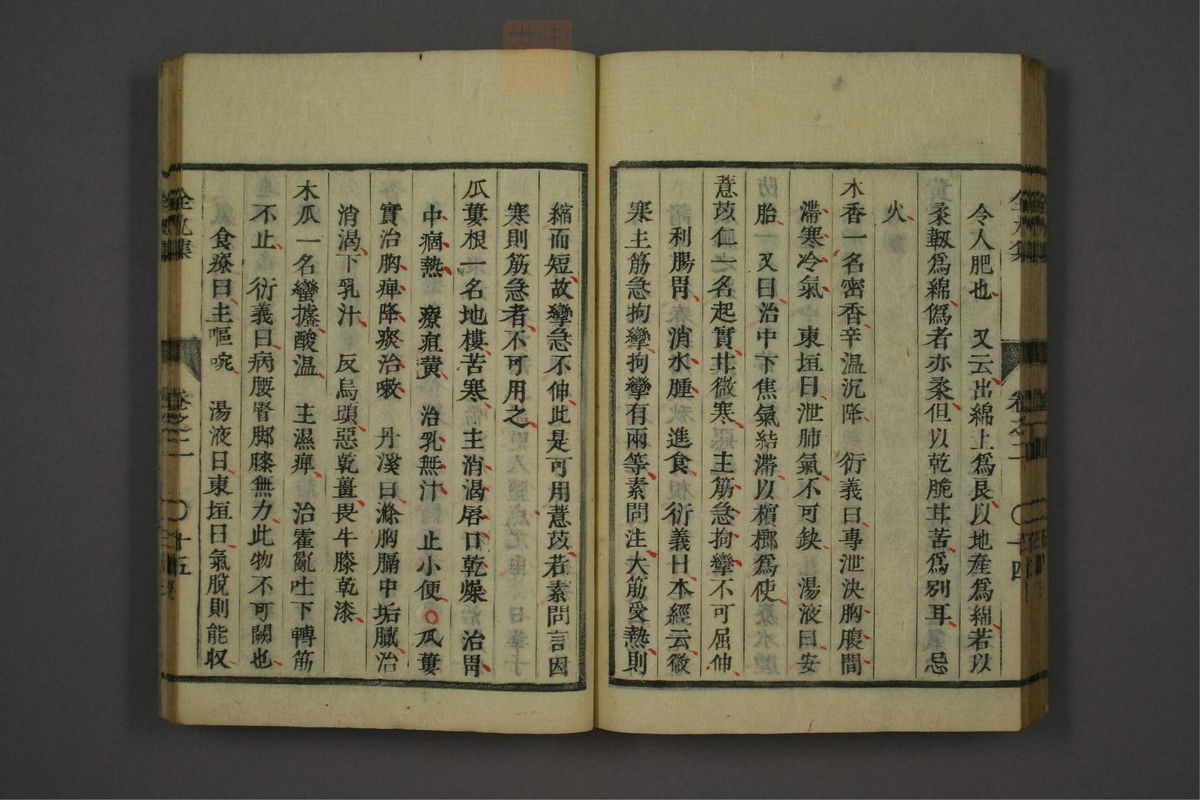 令人肥也　又云出綿上爲良以地産爲綿若以
柔韌爲綿僞者亦柔但以乾脆甘苦爲別耳　忌
火
木香一名密香辛温沉降　衍義曰專泄決胸腹間
滯寒冷氣　東垣曰泄肺氣不可缺　湯液曰安
胎　一又曰治中下焦氣結滯以檳榔爲使
薏苡仁一名起實甘微寒　主筋急拘攣不可屈伸
利腸胃　消水腫　進食　衍義曰本經云微
寒主筋急拘攣拘攣有兩等素問注大筋受熱則
縮而短故攣急不伸此是可用薏苡若素問言因
寒則筋急者不可用之
瓜蔞根一名地樓苦寒　主消渴唇口乾燥　治胃
中痼熱　療疸黄　治乳無汁　止小便〇瓜蔞
實治胸痺降痰治嗽　丹溪曰滌胸膈中垢膩治
消渴下乳汁　反烏頭惡乾薑畏牛膝乾漆
木瓜一名蠻攎酸温　主濕痺　治霍亂吐下轉筋
不止　衍義曰病腰腎脚膝無力此物不可闕也
食療曰主嘔啘　湯液曰東垣曰氣脫則能収
卷之二　〇　十四
全九集　卷之二　〇　十五